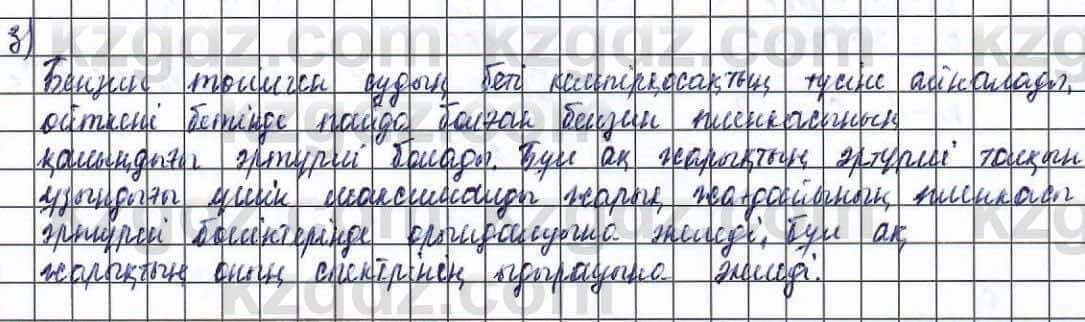 3)
Бензин төгілген судың беті кемпірқосақтың түсіне айналады,
өйткені бетінде пайда болған бензин пленкасының
қалыңдығы әртүрлі болады. Бұл ақ жарықтың әртүрлі толқын
ұзындығы үшін максималды жарық жағдайының пленкасы
әртүрлі бөліктерінде орындалуына әкеледі, бұл ақ
жарықтың оның спектрінің ыдырауына әкеледі.
kzgdz.com